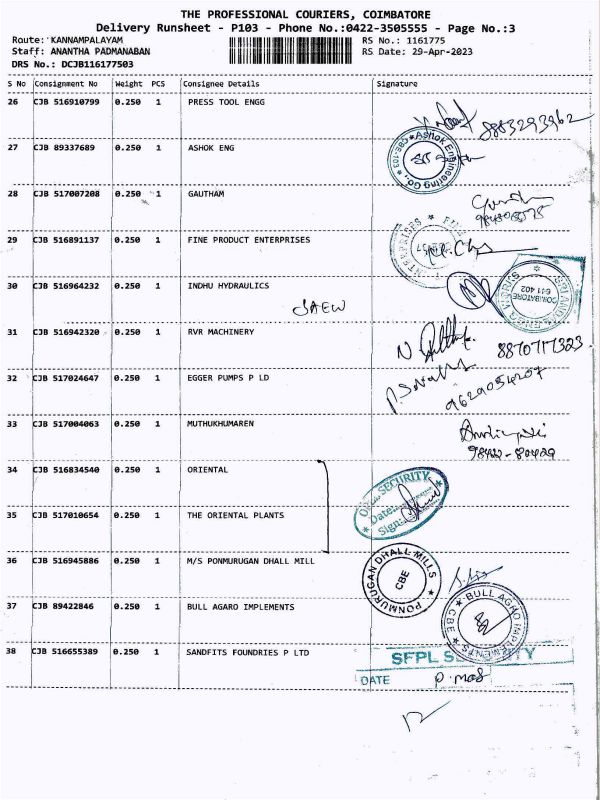 THE PROFESSIONAL COURIERS, COIMBATORE
Delivery Runsheet - P103 - Phone No.:0422-3505555 - Page No.:3
Route: KANNAMPALAYAM RS No.: 1161775
Staff: ANANTHA PADMANABAN RS Date: 29-Apr-2023
DRS No.: DCJB116177503
S No Consignment No Weight PCS Consignee Details Signature
26 CJB 516910799 0.250 1 PRESS TOOL ENGG
8883293962
27 CJB 89337689 0.250 1 ASHOK ENG
Ashok Engineering Co., CBE-103
28 CJB 517007208 0.250 1 GAUTHAM
29 CJB 516891137 0.250 1 FINE PRODUCT ENTERPRISES
30 CJB 516964232 0.250 1 INDHU HYDRAULICS
COIMBATORE
641 402
SAEW
31 CJB 516942320 0.250 1 RVR MACHINERY
8870717323
32 CJB 517024647 0.250 1 EGGER PUMPS P LD
9629054207
33 CJB 517004063 0.250 1 MUTHUKHUMAREN
98422-80429
34 CJB 516834540 0.250 1 ORIENTAL
SECURITY
Date
Sign
35 CJB 517010654 0.250 1 THE ORIENTAL PLANTS
36 CJB 516945886 0.250 1 M/S PONMURUGAN DHALL MILL
PONMURUGAN DHALL MILLS
CBE
37 CJB 89422846 0.250 1 BULL AGARO IMPLEMENTS
BULL AGRO IMPLEMENTS CBE
38 CJB 516655389 0.250 1 SANDFITS FOUNDRIES P LTD
SFPL SECURITY
DATE